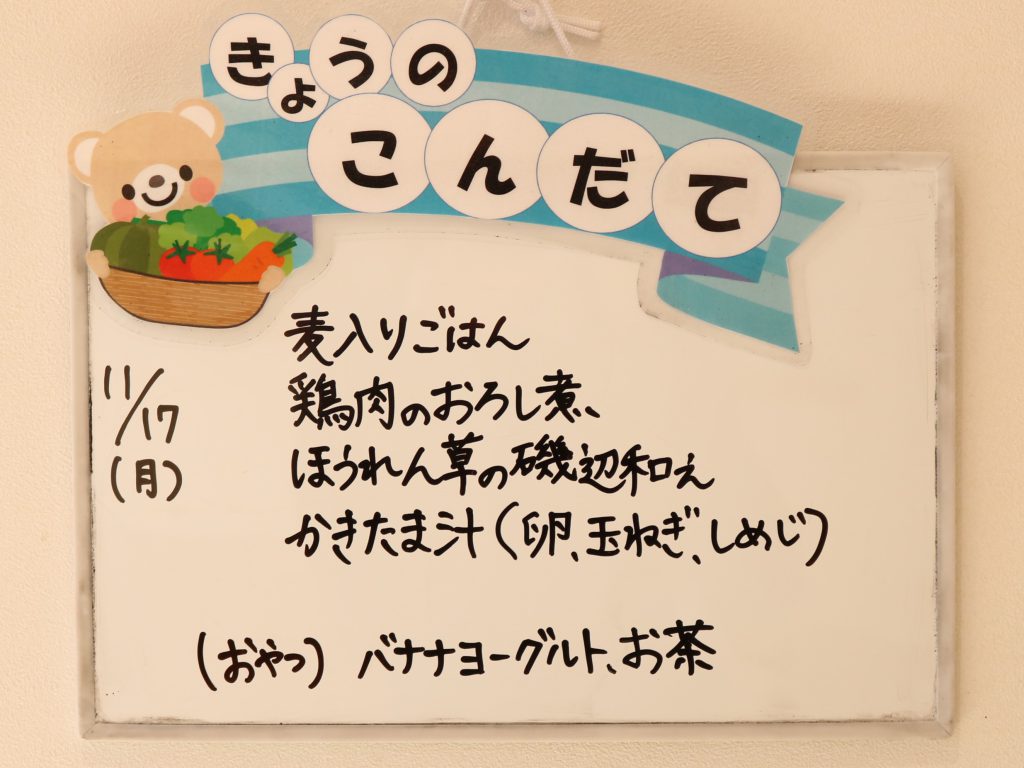 きょうの
こんだて
11/17
(月)
麦入りごはん
鶏肉のおろし煮、
ほうれん草の磯辺和え
かきたま汁(卵、玉ねぎ、しめじ)
(おやつ) バナナヨーグルト、お茶